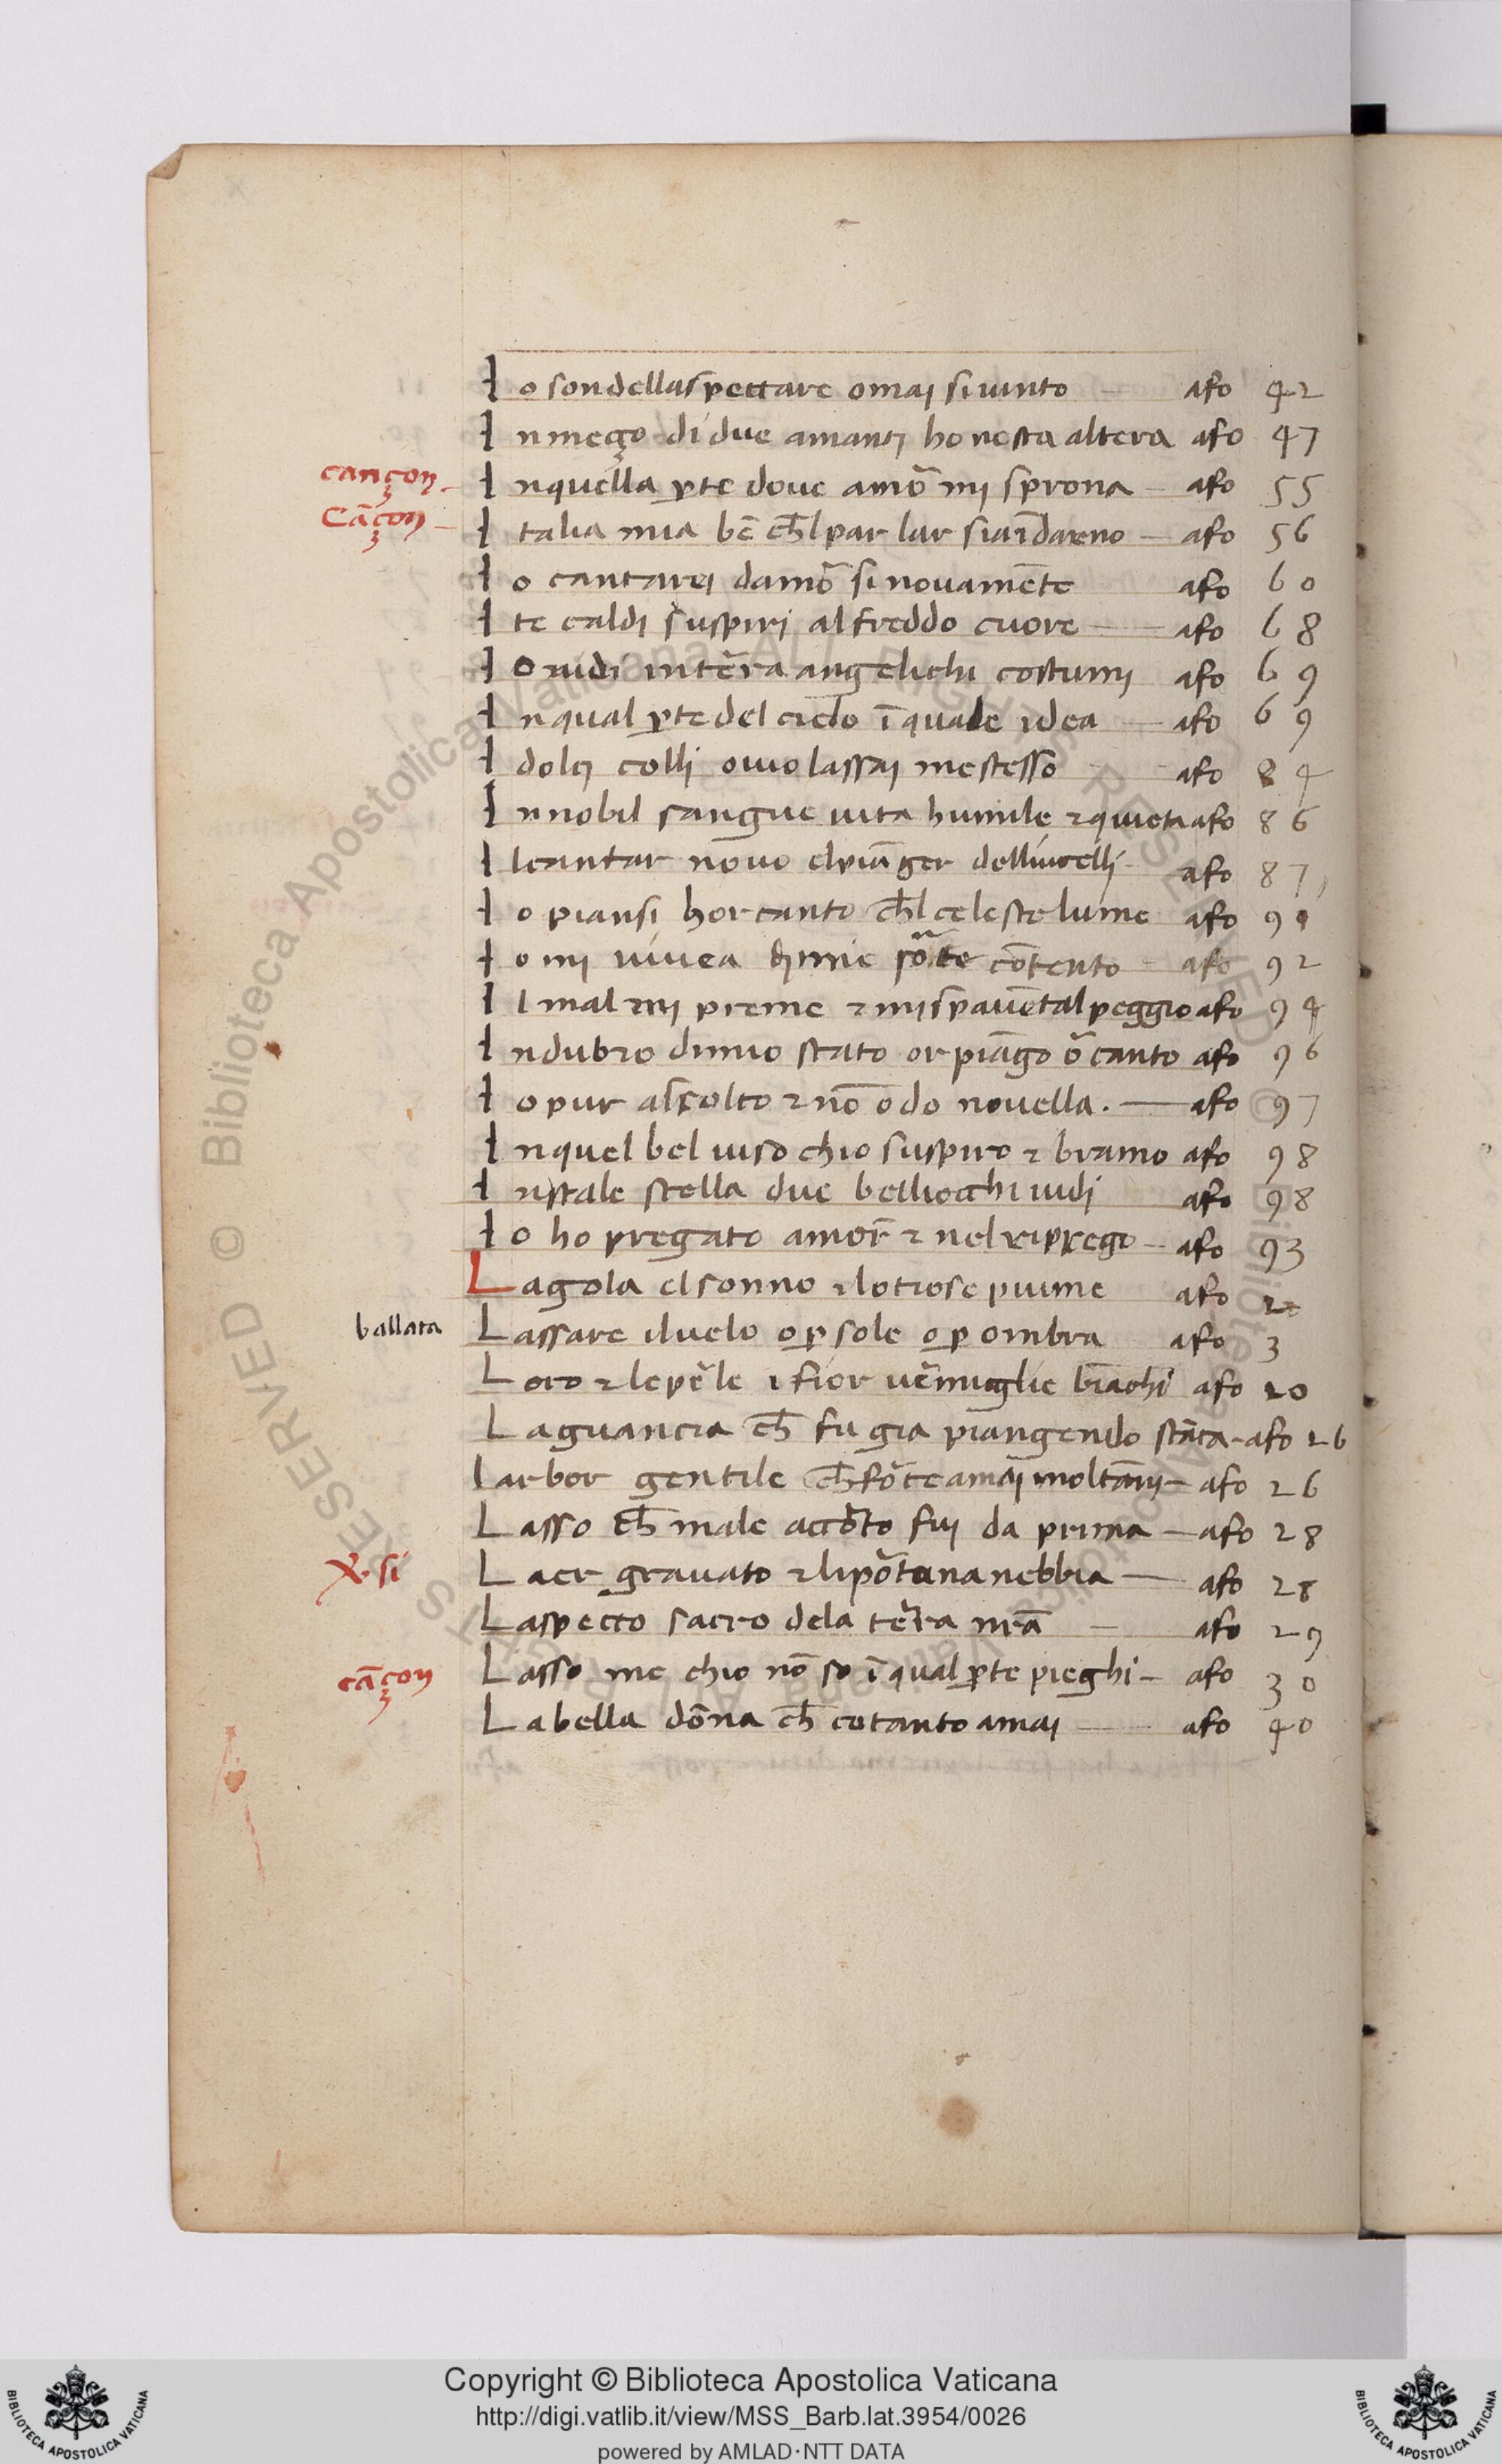 I o son dellaspettare omai si uinto — afo 42
I n meço di due amanti honesta altera afo 47
cançon I n quella ꝑte doue amõ mi sprona — afo 55
Cãçon I talia mia bẽ ch̃l parlar sia ĩdareno — afo 56
I o cantarei damõ si nouamẽte afo 60
I te caldi suspiri al freddo cuore — afo 68
I o uidi in tẽra angelichi costumi afo 69
I n qual ꝑte del cielo ĩ quale idea — afo 69
I dolci colli ouio lassai me stesso afo 84
I n nobil sangue uita humile ⁊ quieta afo 86
I l cantar nõuo el piãger delli ucelli afo 87
I o piansi hor canto ch̃l celeste lume afo 91
I o mi uiuea di mie sõte cõtento — afo 92
I l mal mi preme ⁊ mi spauẽta l peggio afo 94
I n dubio di mio stato or piãgo õ canto afo 96
I o pur ascolto ⁊ nõ odo nouella. — afo 97
I n quel bel uiso chio suspiro ⁊ bramo afo 98
I n tale stella due belli occhi uidi afo 98
I o ho pregato amor̃ ⁊ nel riprego — afo 93
L a gola el sonno ⁊ lotiose piume afo
ballata L assare il uelo o ꝑ sole o ꝑ ombra afo 3
L oro ⁊ le pẽle i fior uẽmiglie biãchi afo 20
L a guancia ch̃ fu gia piangendo stãca - afo 26
L arbor gentile ch̃ fõte amai molt ãni — afo 26
L asso ch̃ male accõto fui da prima — afo 28
L aer grauato ⁊ lipõtuna nebbia — afo 28
L aspecto sacro dela tẽra nrã — afo 29
cãçon L asso me chio nõ so ĩ qual ꝑte pieghi — afo 30
L a bella dõna ch̃ cotanto amai — afo 40
© Biblioteca Apostolica Vaticana ALL RIGHTS RESERVED
Copyright © Biblioteca Apostolica Vaticana
http://digi.vatlib.it/view/MSS_Barb.lat.3954/0026
powered by AMLAD·NTT DATA
BIBLIOTECA APOSTOLICA VATICANA
BIBLIOTECA APOSTOLICA VATICANA